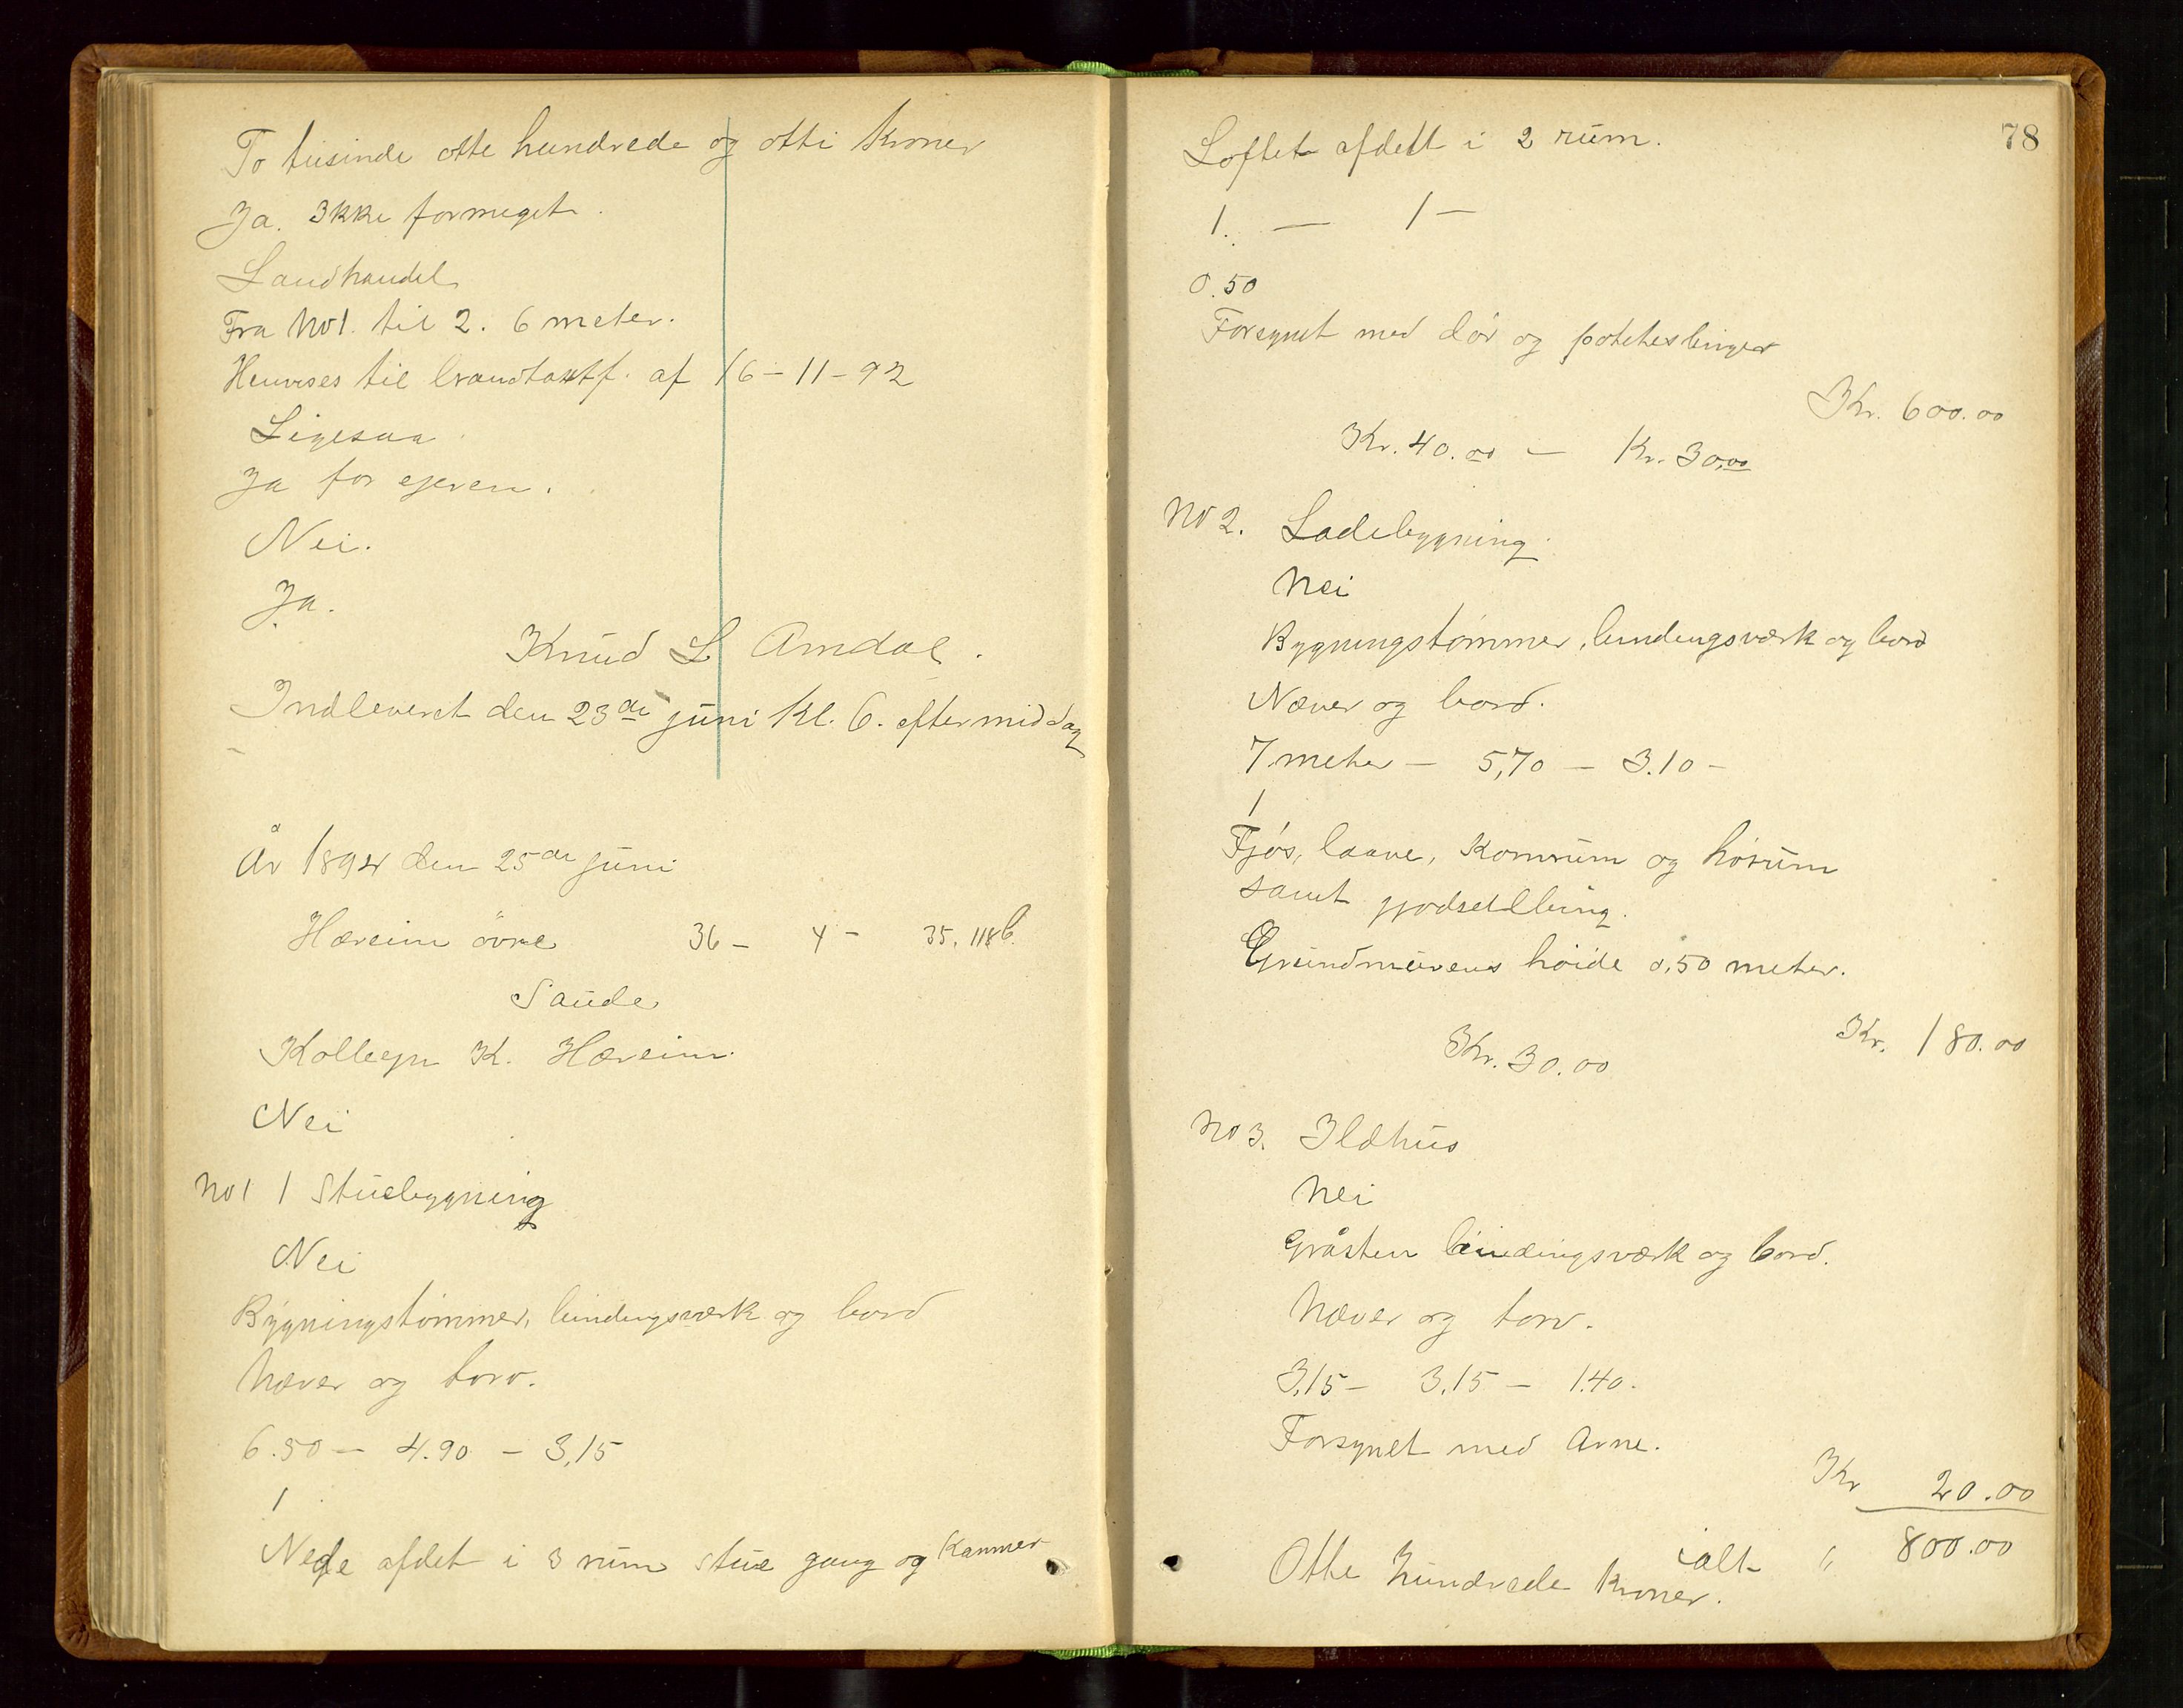 To tusinde otte hundrede og otti kroner
Ja. Ikke formeget.
Landhandel
Fra No 1. til 2. 6 meter.
Henvises til brandtaxtf. af 16-11-92
Ligesaa.
Ja for ejeren.
Nei.
Ja.
Knud L Amdal.
Indleveret den 23de juni Kl. 6. eftermiddag
År 1894 den 25de juni
Hæreim övre 36 - 4 - 35, 118 b.
Saude
Kolbejn K. Hæreim.
Nei
No 1 1 Stuebygning
Nei
Bygningstømmer, bindingsværk og bord
Næver og torv.
6.50 - 4.90 - 3,15
1
Nede afdet i 3 rum stue gang og Kammer
78
Loftet afdelt i 2 rum.
1. - 1 -
0.50
Forsynet med dör og potetesbinger
Kr. 600.00
Kr. 40.00 - Kr. 30,00
No 2. Ladebygning.
Nei
Bygningstømmer, bindingsværk og bord
Næver og bord.
7 meter - 5,70 - 3.10 -
1
Fjós, laave, Kornrum og hórum
samt gjødselbing.
Grundmurens høide 0,50 meter.
Kr. 180.00
Kr. 30.00
No 3. Ildhus
Nei
Gråsten bindingsværk og bord.
Næver og torv.
3,15 - 3,15 - 1.40.
Forsynet med Arne.
Kr 20.00
ialt " 800.00
Otte hundrede kroner.